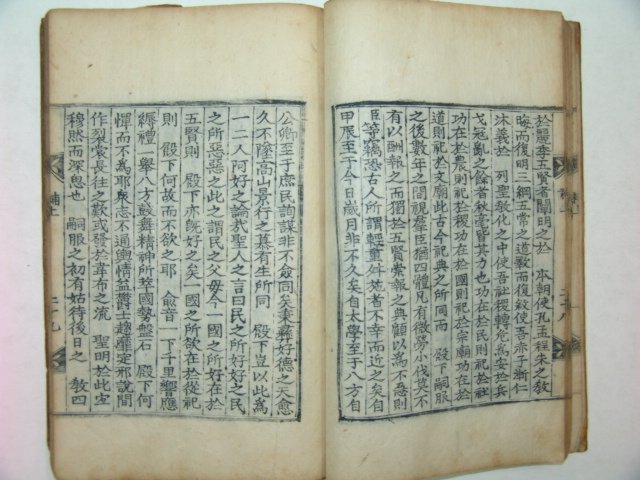 於麗季五賢者闡明之於　本朝使孔孟程朱之教
晦而復明三綱五常之道斁而復敘使吾赤子漸仁
沐義於　列聖敎化之中使吾社稷轉危爲安於兵
戈寇亂之餘者秋毫皆其力也功在於民則祀於社
功在於農則祀於稷功在於國則祀於宗廟功在於
道則祀於文廟此古今祀典之所同而　殿下嗣服
之後數年之間視羣臣猶四體凡有微勞小伐莫不
有以酬報之而獨於五賢崇報之典顧以爲不急則
臣等竊恐古人所謂輕重舛施者不幸而近之矣自
甲辰至于今日歲月非不久矣自太學至于八方自
公卿至于庶民詢謀非不僉同矣秉彝好德之天愈
久不墜高山景行之慕有生所同　殿下豈以此爲
一二人阿好之論哉聖人之言曰民之所好好之民
之所惡惡之此之謂民之父母今一國之所好在於
五賢則　殿下亦旣好之矣一國之所欲在於從祀
則　殿下何故而不欲之耶　兪音一下千里響應
縟禮一舉八方鼓舞精神所萃國勢盤石　殿下何
憚而不爲耶衆志不通輿情益鬱士趨靡定邪說間
作裂裳長往之歎或發於韋布之流　聖明於此宜
穆然而深思也　嗣服之初有姑待後日之　敎四
補上
二十九